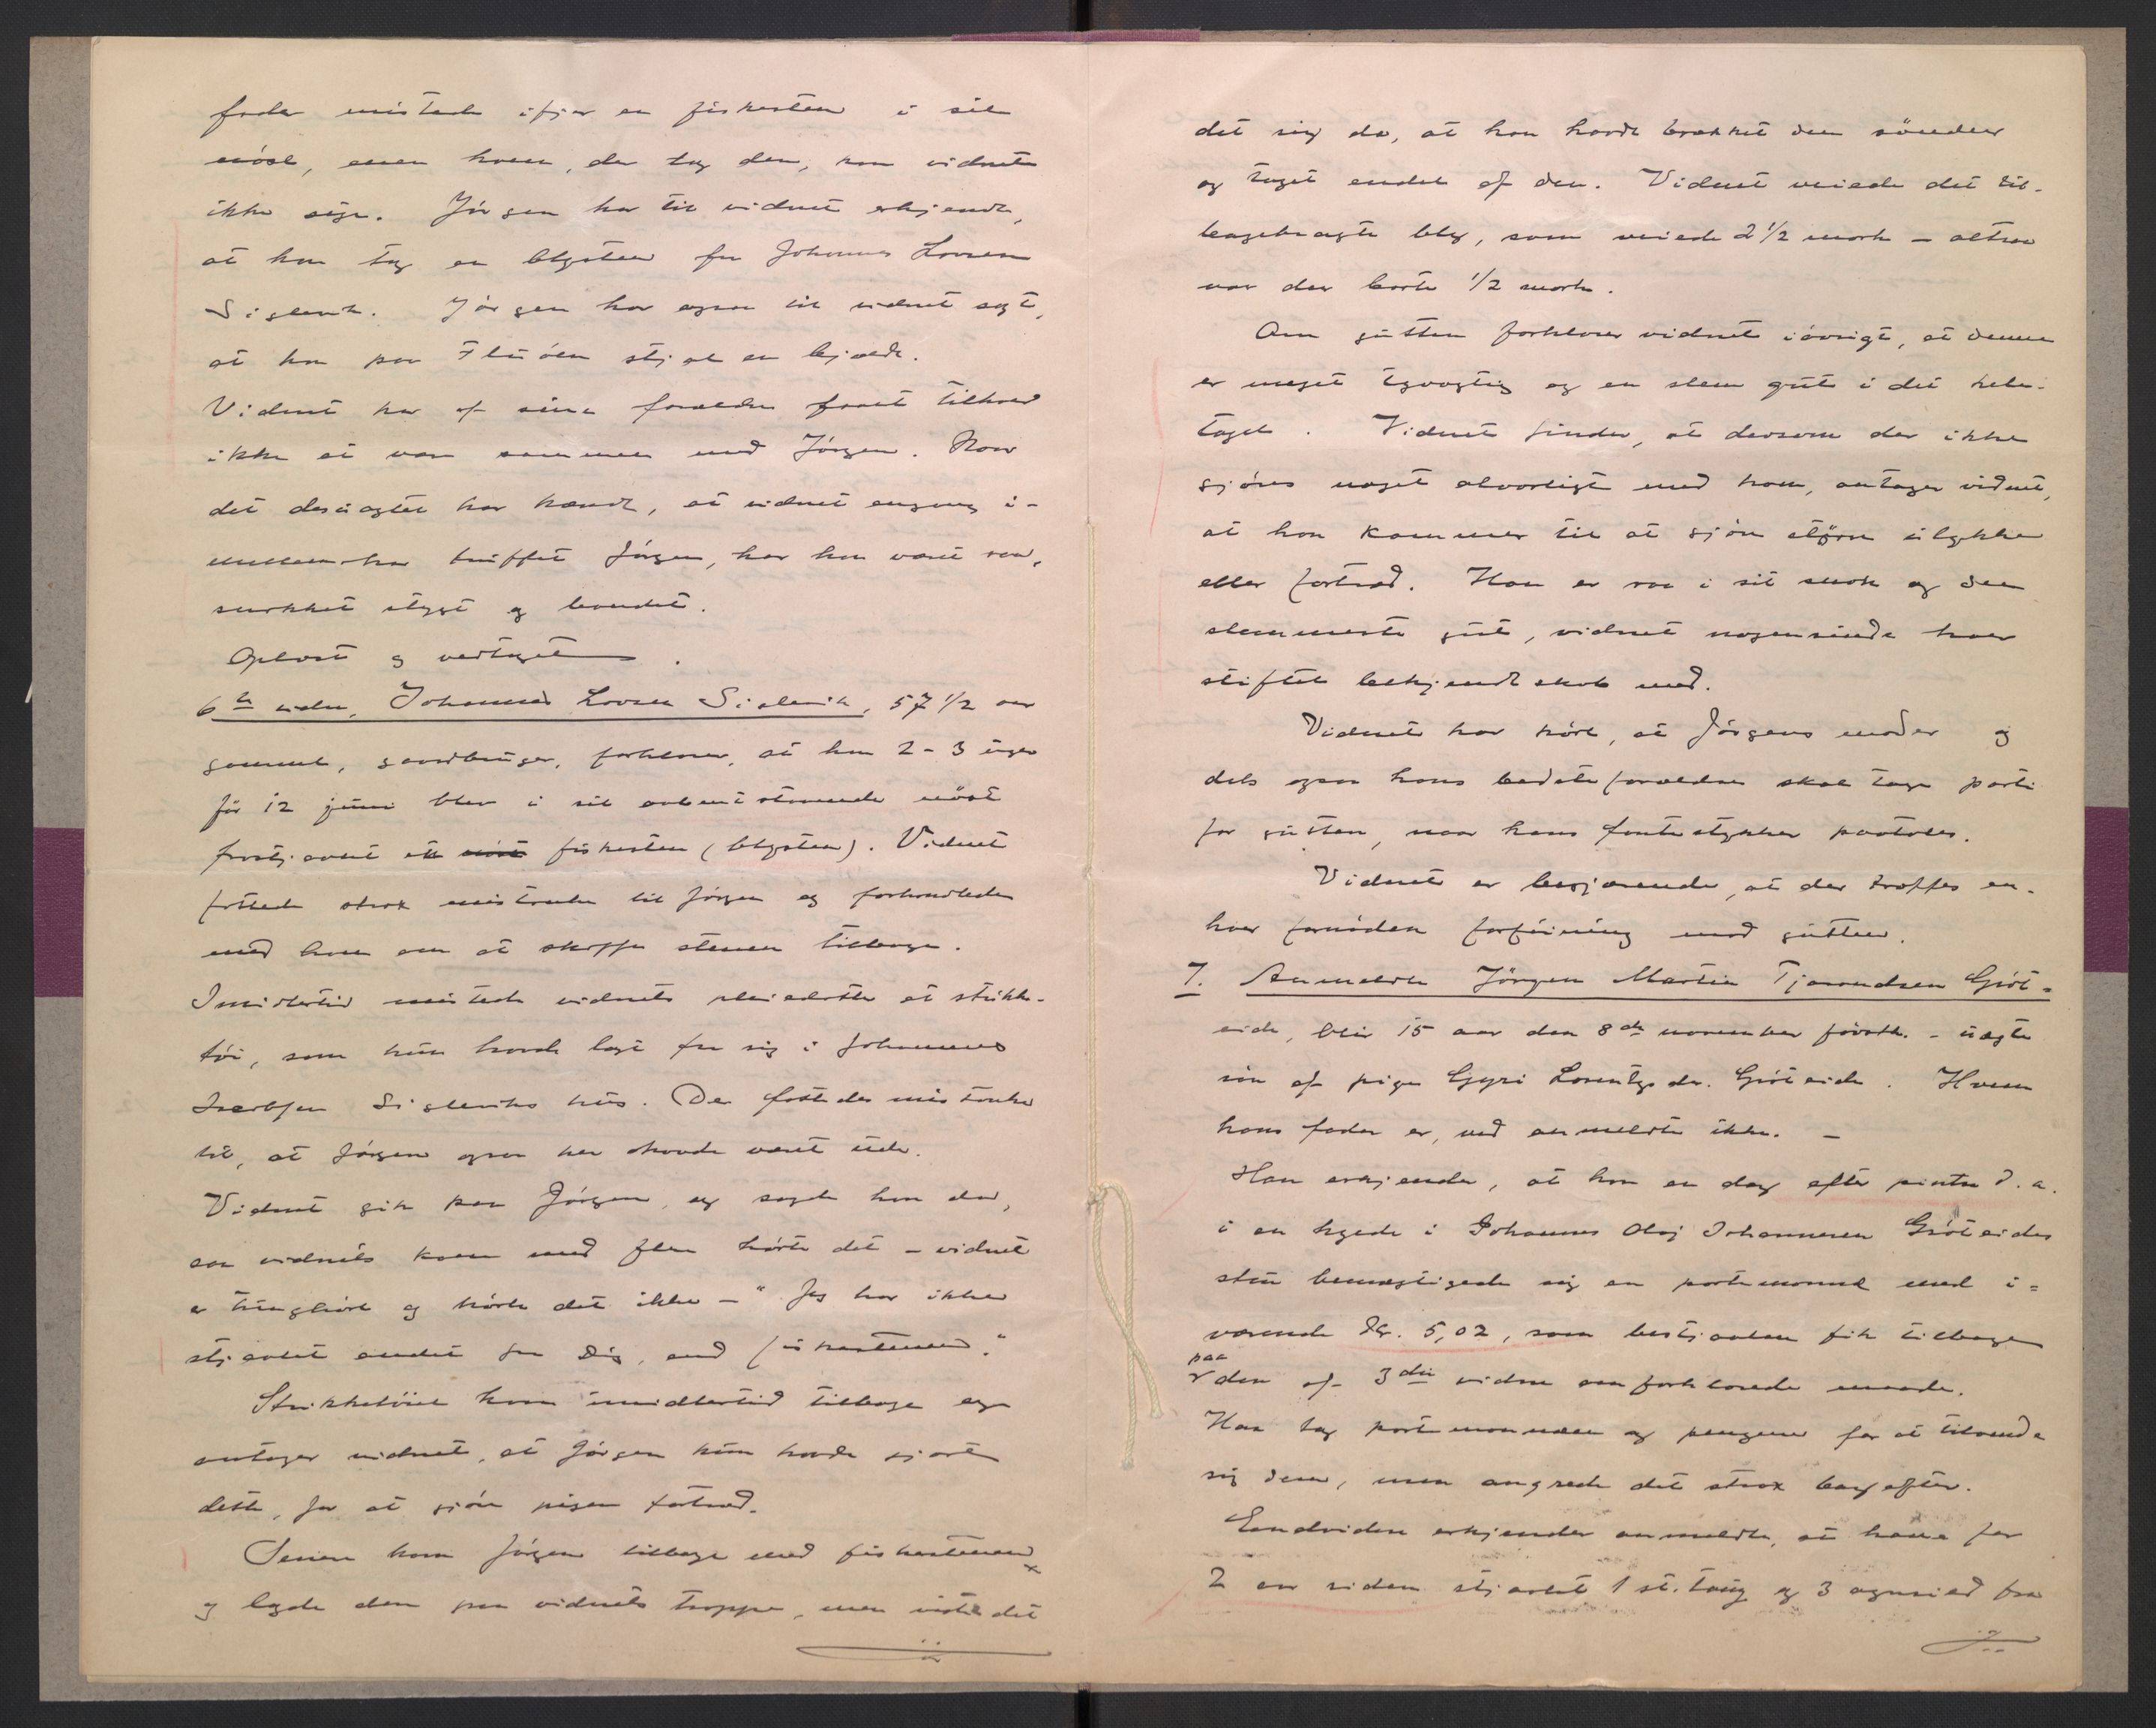 fader mistede ifjor en fiskesten i sit
nöst, men hvem, der tog den, kan vidnet
ikke sige. Jörgen har til vidnet erkjendt,
at han tog en blysten fra Johannes Larsen
Siglevik. Jörgen har ogsaa til vidnet sagt,
at han paa stjal en bjælde.
Vidnet har af sine forældre faaet tilhold
ikke at være sammen med Jörgen. Naar
det desuagtet har hændt, at vidnet engang i-
mellem har truffet Jörgen, har han været raa,
snakket stygt og bandet.
Oplæst og vedtaget.
6te vidne, Johannes Larsen Siglevik, 57 1/2 aar
gammel, gaardbruger, forklarer, at han 2-3 uger
för 12 juni blev i sit nöst
frastjaalet en fiskesten (blysten). Vidnet
fattede strax mistanke til Jörgen og forhandlede
med ham om at skaffe stenen tilbage.
Imidlertid mistede vidnets pleiedatter et strikke-
töi, som hun havde lagt fra sig i Johannes
Sigleviks hus. Der fattedes mistanke
til, at Jörgen ogsaa her havde været ude.
Vidnet gik paa Jörgen, og sagde han da,
saa vidnets kone med flere hörte det - vidnet
er tunghört og hörte det ikke - "Jeg har ikke
stjaalet andet fra Dig, end fiskestenen."
Strikketöiet kom imidlertid tilbage og
antager vidnet, at Jörgen kun havde gjort
dette, for at gjöre pigen fortræd.
Senere kom Jörgen tilbage med fiskestenen
og lagde den paa vidnets trappe, men viste det
det sig da, at han havde brækket den sönder
og taget endel af den. Vidnet veiede det til-
bagebragte bly, som veiede 2 1/2 mark - altsaa
var der borte 1/2 mark.
Om gutten forklarer vidnet iövrigt, at denne
er meget tyvagtig og en slem gut i det hele-
taget. Vidnet finder, at dersom der ikke
gjöres noget alvorligt med ham, antager vidnet,
at han kommer til at gjöre större ulykke
eller fortræd. Han er raa i sit snak og den
slemmeste gut, vidnet nogensinde har
stiftet bekjendtskab med.
Vidnet har hört, at Jörgens moder og
dels ogsaa hans bedsteforældre skal tage parti
for gutten, naar hans fantestykker paatales.
Vidnet er begjærende, at der træffes en-
hver fornöden forföining mod gutten.
7. Anmeldte Jörgen Martin Tjerandsen Gröt-
eide, blir 15 aar den 8de november förstk. - uægte
sön af pige Gyri Lorentzdr. Gröteide. Hvem
hans fader er, ved anmeldte ikke. -
Han erkjender, at han en dag efter pintse d. a.
i en höide i Johannes Olaj Johannesen Gröteides
stue bemægtigede sig en portemonnæ med i-
værende Kr. 5,02, som bestjaalne fik tilbage
paa
den af 3die vidne omforklarede maade.
Han tog portemonnæen og pengene for at tilvende
sig dem, men angrede det strax bagefter.
Endvidere erkjender anmeldte, at have for
2 aar siden stjaalet 1 st. taug og 3 fra